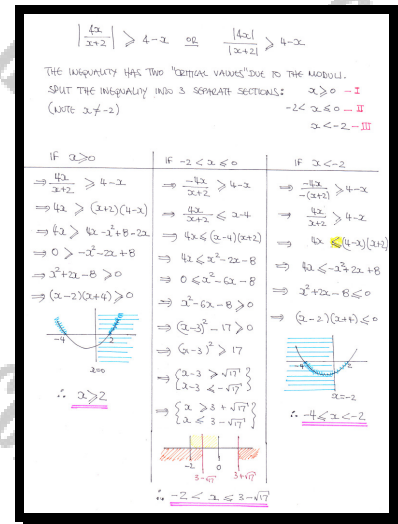 |4x/(x+2)| ⩾ 4-x OR |4x|/|x+2| ⩾ 4-x
THE INEQUALITY HAS TWO "CRITICAL VALUES" DUE TO THE MODULI.
SPLIT THE INEQUALITY INTO 3 SEPARATE SECTIONS: x⩾0 - I
(NOTE x≠-2) -2< x⩽0 - II
x<-2 - III
IF x⩾0
⇒ 4x/(x+2) ⩾ 4-x
⇒ 4x ⩾ (x+2)(4-x)
⇒ 4x ⩾ 4x-x²+8-2x
⇒ 0 ⩾ -x²-2x+8
⇒ x²+2x-8 ⩾0
⇒ (x-2)(x+4) ⩾0
-4 2
x=0
∴ x⩾2
IF -2 < x ⩽ 0
⇒ -4x/(x+2) ⩾ 4-x
⇒ 4x/(x+2) ⩽ x-4
⇒ 4x⩽(x-4)(x+2)
⇒ 4x ⩽ x²-2x-8
⇒ 0 ⩽ x²-6x-8
⇒ x²-6x-8 ⩾0
⇒ (x-3)²-17 ⩾0
⇒ (x-3)² ⩾ 17
⇒ {x-3 ⩾ √17
x-3 ⩽ -√17}
⇒ {x ⩾ 3+√17
x ⩽ 3-√17}
-2 0
3-√17 3+√17
∴ -2 < x ⩽ 3-√17
IF x<-2
⇒ -4x/-(x+2) ⩾ 4-x
⇒ 4x/(x+2) ⩾ 4-x
⇒ 4x ⩽ (4-x)(x+2)
⇒ 4x ⩽ -x²+2x+8
⇒ x²+2x-8 ⩽0
⇒ (x-2)(x+4) ⩽0
-4 2
x=-2
∴ -4⩽x<-2